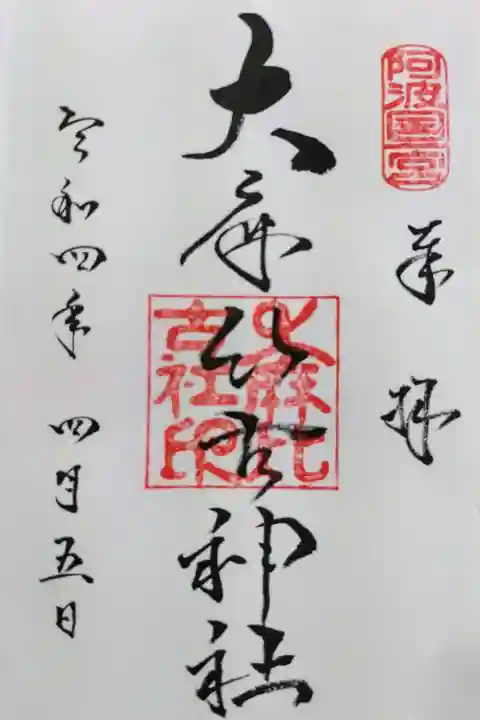 阿波国一宮
奉拝
大麻比古神社
大麻比古社印
令和四年 四月五日